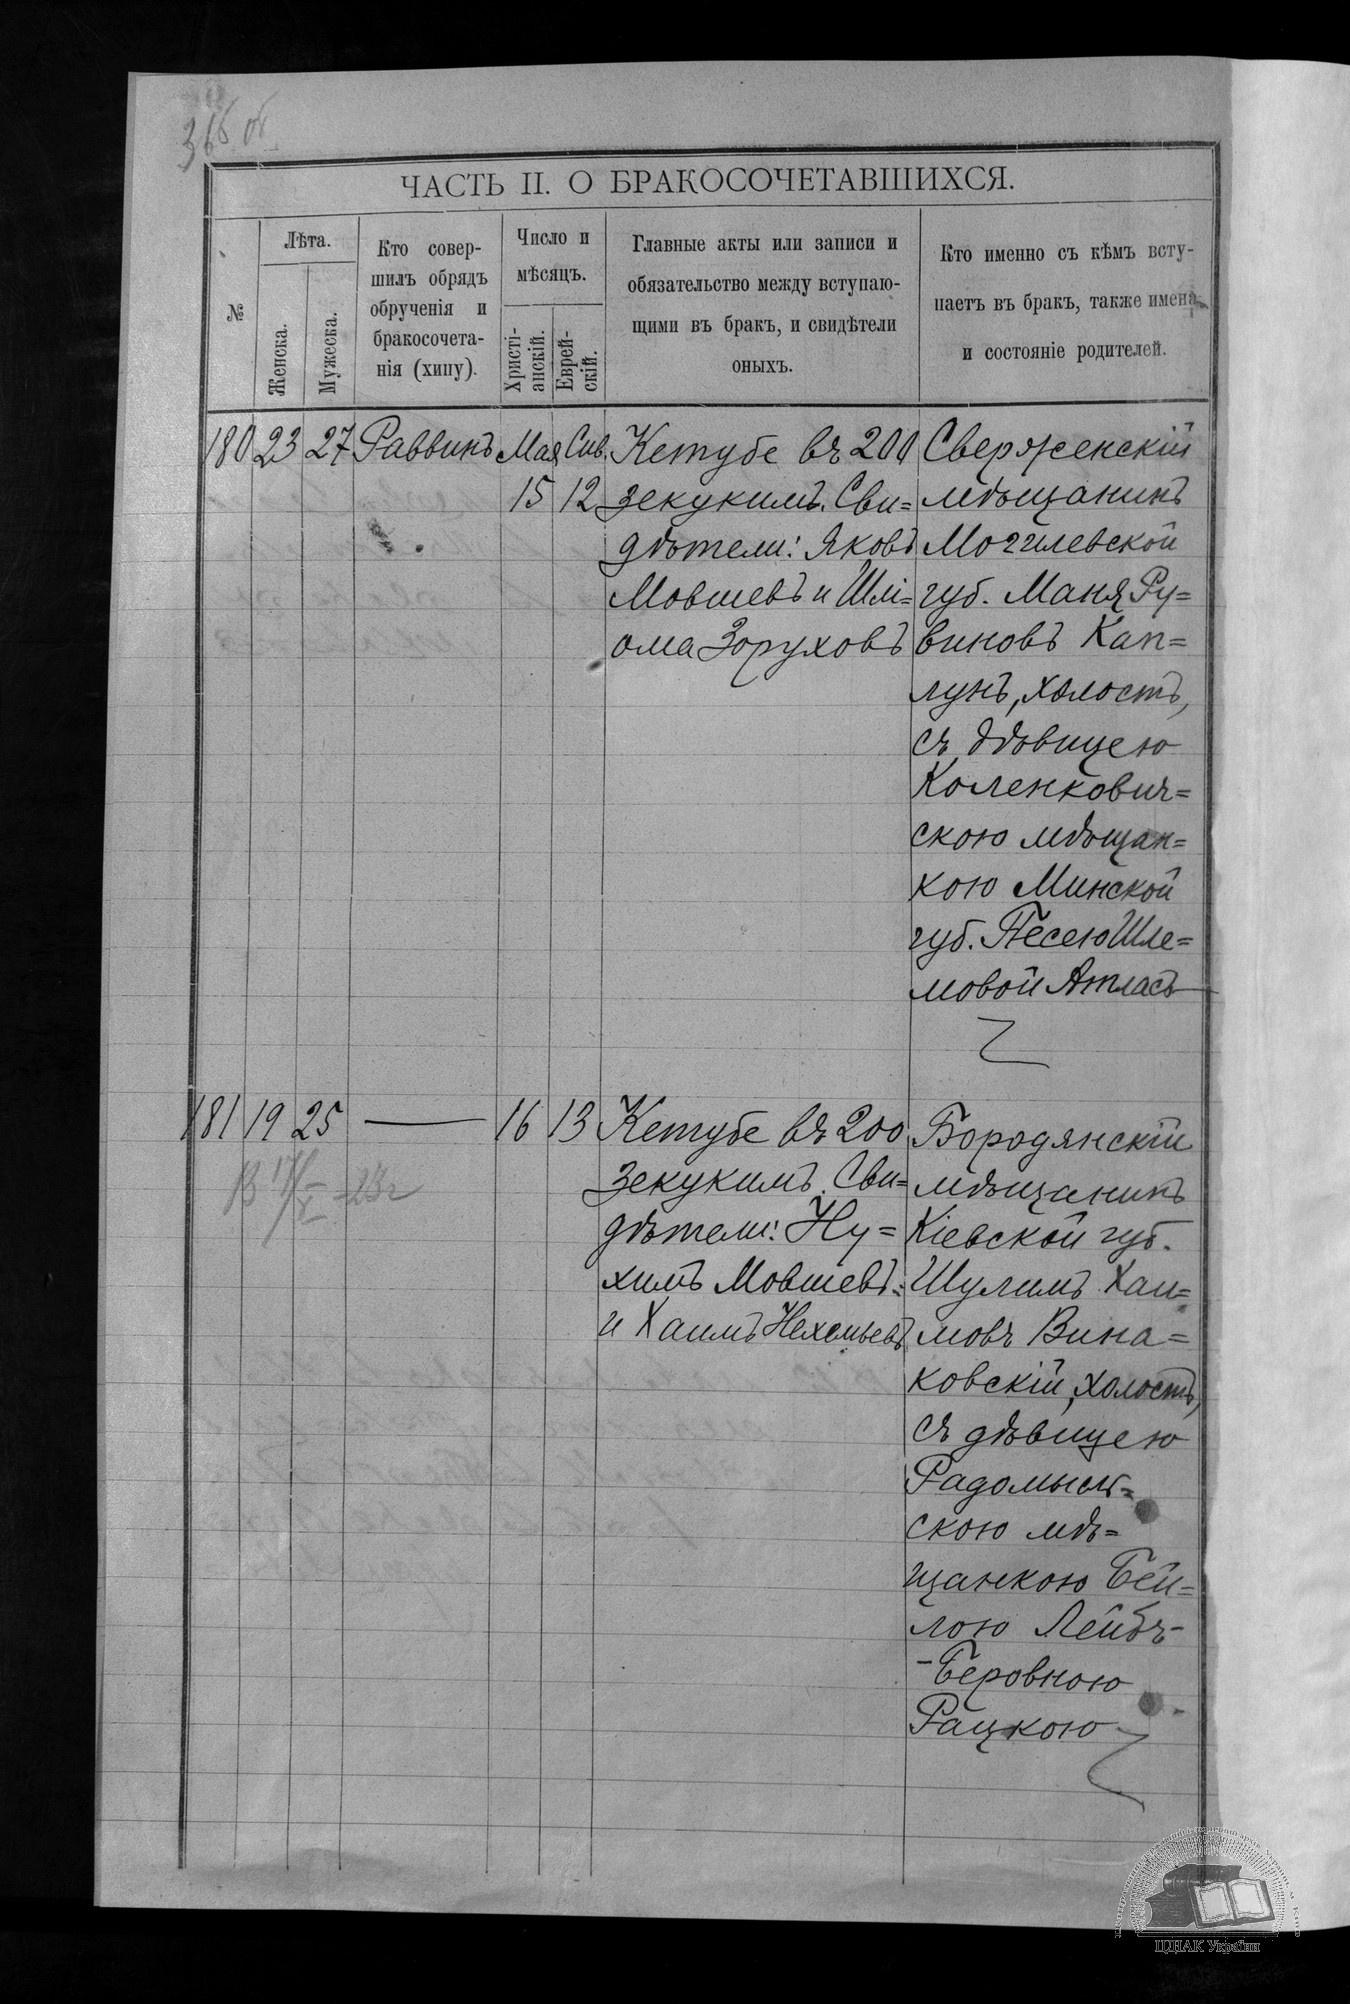 366 об
ЧАСТЬ II. О БРАКОСОЧЕТАВШИХСЯ.
№
Лѣта.
Женска.
Мужеска.
Кто совер-
шилъ обрядъ
обрученія и
бракосочета-
нія (хипу).
Число и
мѣсяцъ.
Христі-
анскій.
Еврей-
скій.
Главные акты или записи и
обязательство между вступаю-
щими въ бракъ, и свидѣтели
оныхъ.
Кто именно съ кѣмъ всту-
паетъ въ бракъ, также имена
и состояніе родителей.
180 23 27 Раввинъ Мая Сив.
15 12
Кетубе въ 200
зекукимъ. Сви=
дѣтели: Яковъ
Мовшевъ и Шлі=
ома Зоруховъ
Сверженскій
мѣщанинъ
Могилевской
губ. Маня Ру=
виновъ Кап=
лунъ, холостъ,
съ дѣвицею
Коленкович=
скою мѣщан=
кою Минской
губ. Песею Шле=
мовой Атласъ
181 19 25 — 16 13
Кетубе въ 200
зекукимъ. Сви=
дѣтели: Ну=
химъ Мовшевъ=
и Хаимъ Нехемьевъ
Бородянскій
мѣщанинъ
Кіевской губ.
Шулимъ Хаи=
мовъ Вина=
ковскій, холостъ,
съ дѣвицею
Радомысл=
скою мѣ=
щанкою Бей=
лою Лейбъ-
-Беровною
Рацкою
ЦДІАК України